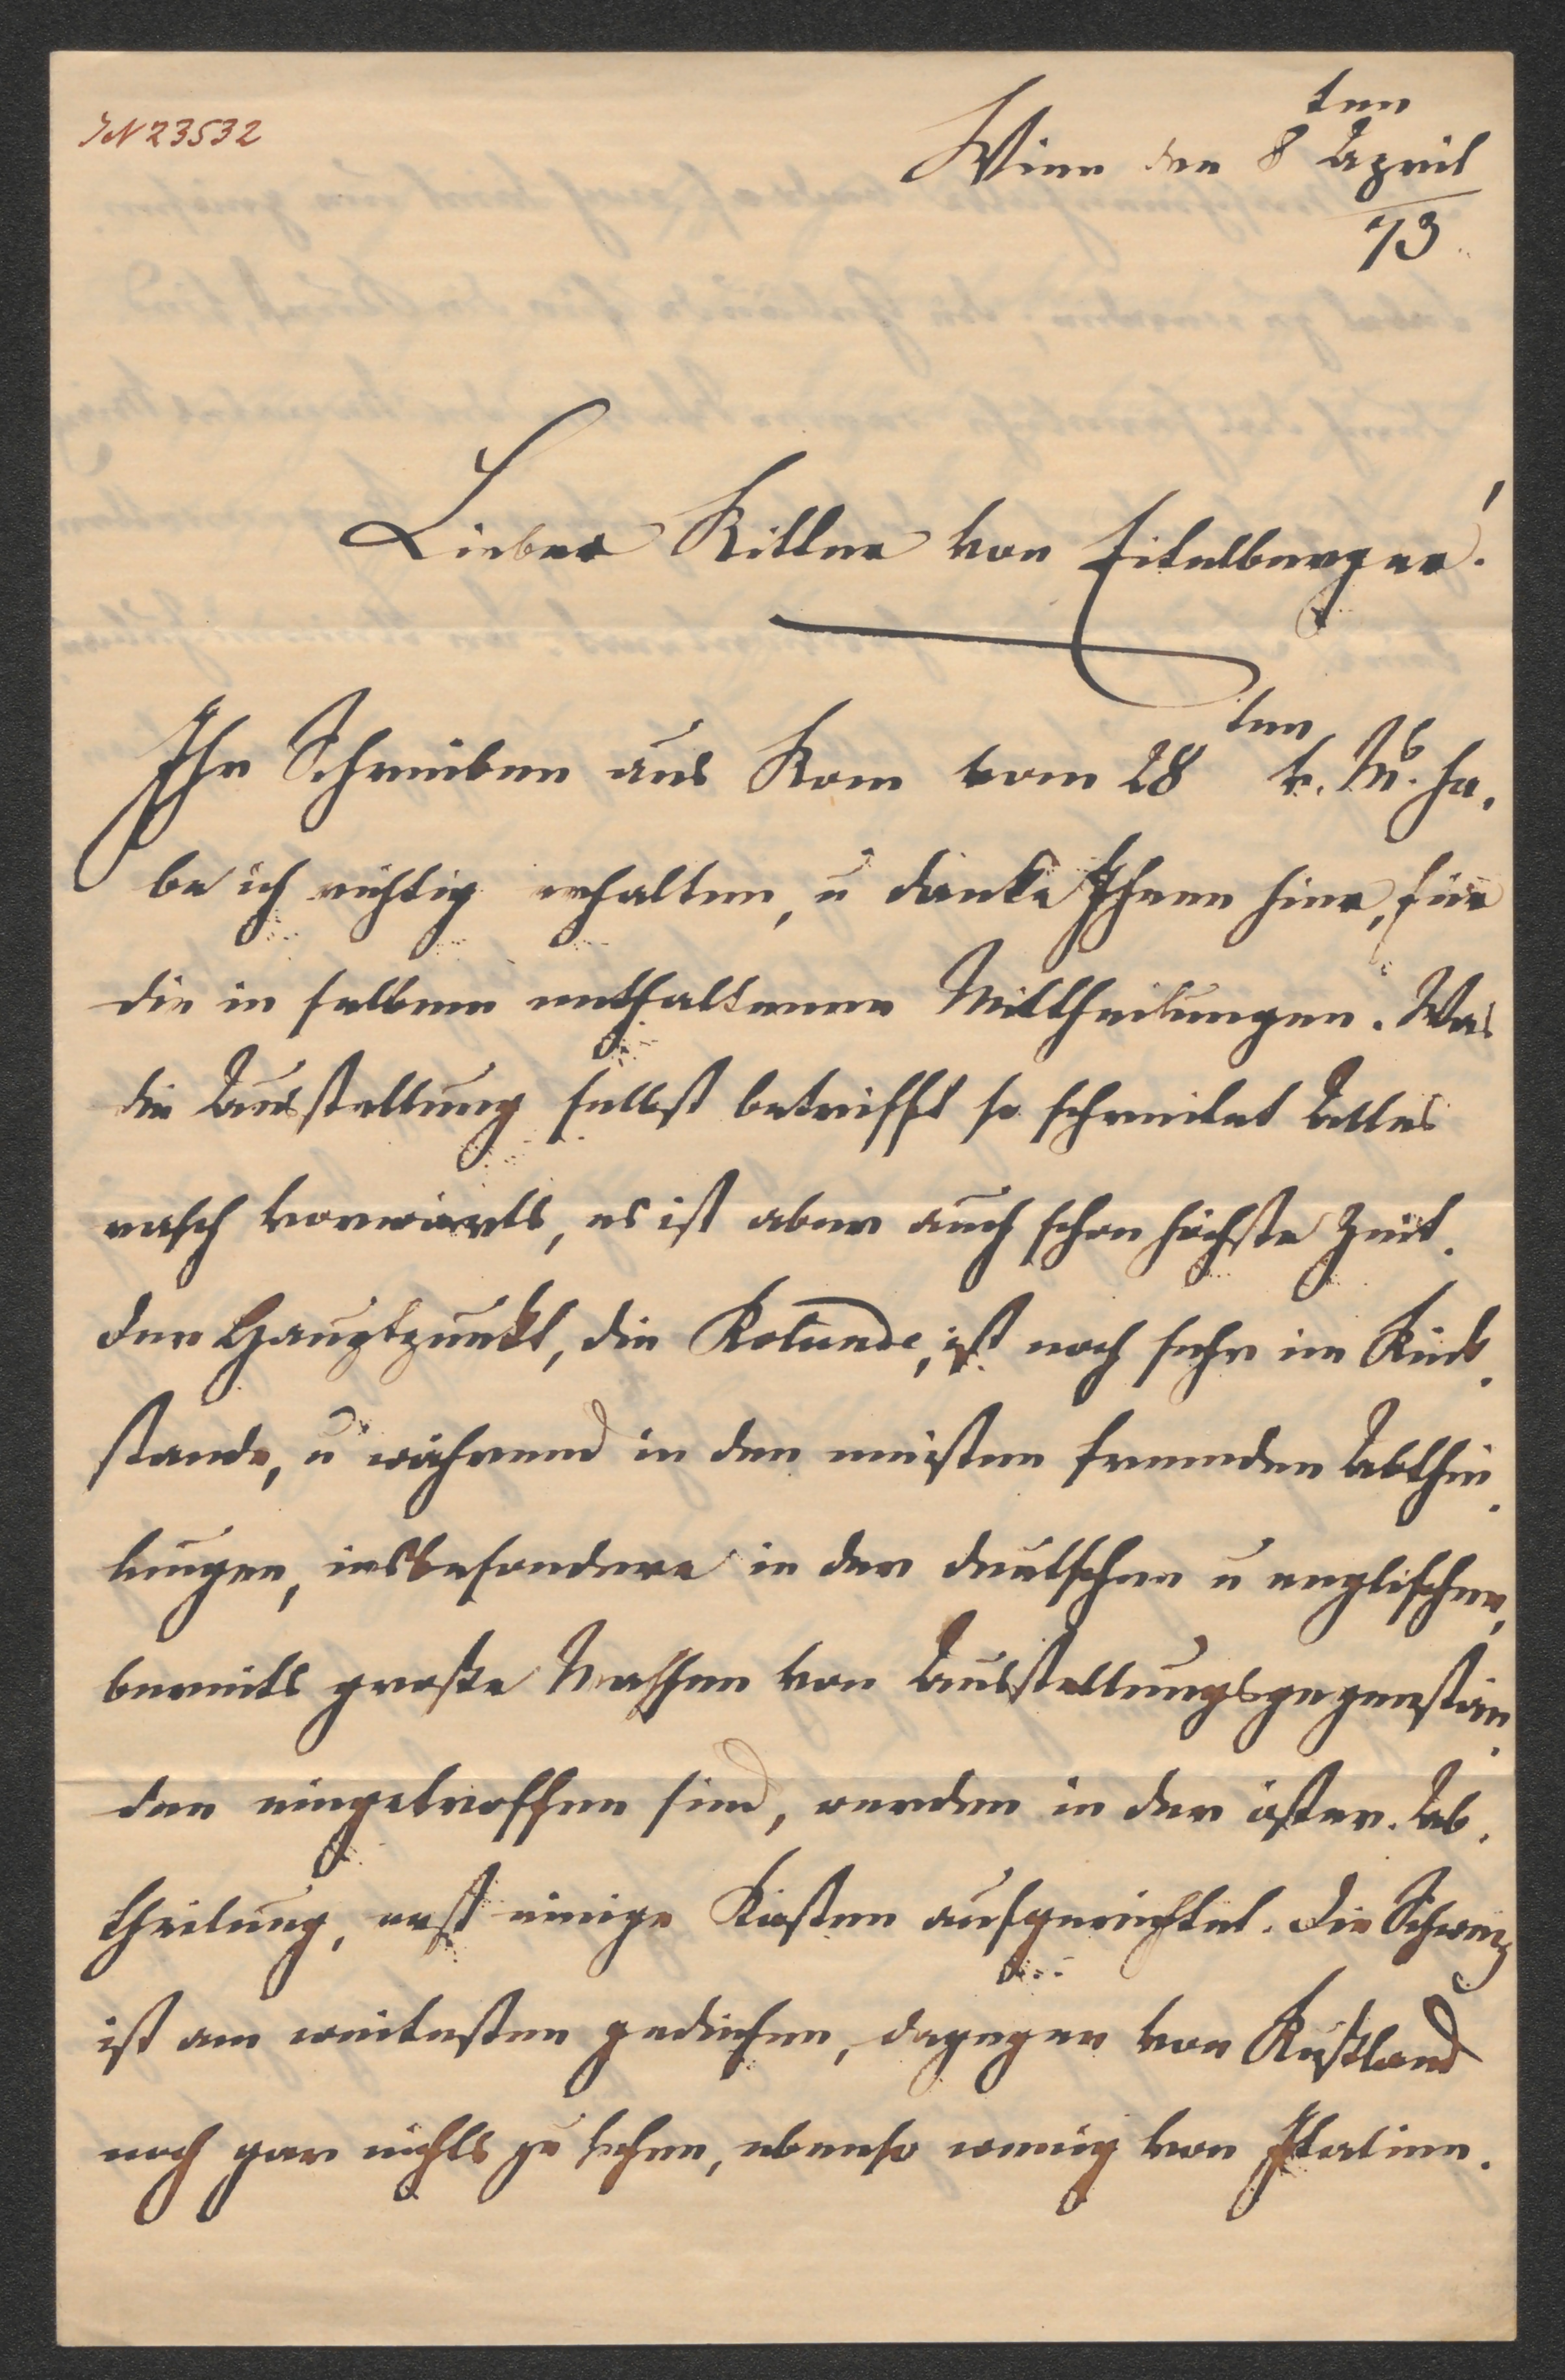 JN 23532
Wien den 8ten April
73.
Lieber Ritter von Eitelberger!
Ihr Schreiben aus Rom vom 28ten v. Ms. ha,
be ich richtig erhalten, u danke Ihnen hier, für
die in selben enthaltenen Mittheilungen. Was
die Ausstellung selbst betrifft so schreitet Alles
rasch vorwärts, es ist aber auch schon höchste Zeit.
Der Hauptpunkt, die Rotunde, ist noch sehr im Rück,
stande, u während in den meisten fremden Abthei,
lungen, insbesondere in der deutschen u englischen,
bereits große Massen von Ausstellungsgegenstän,
den eingetroffen sind, werden in der öster. Ab,
theilung, erst einige Kästen aufgerichtet. Die Schweiz
ist am weitesten gediehen, dagegen von Rußland
noch gar nichts zu sehen, ebenso wenig von Italien.